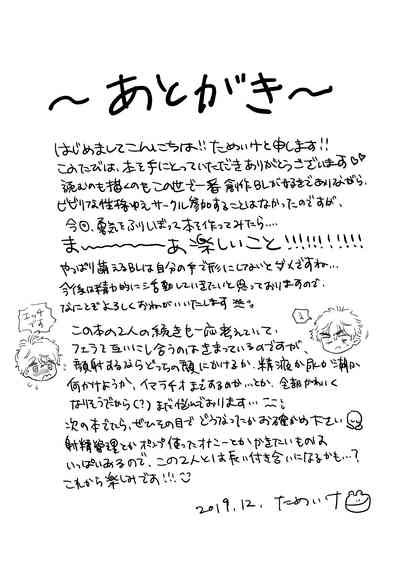 〜あとがき〜
はじめましてこんにちは!! ためいけと申します!!
このたびは、本を手にとっていただきありがとうございます♡♡
読むのも描くのもこの世で一番 創作BLが好きでありながら、
ビビリな性格ゆえサークル参加することはなかったのですが、
今回、勇気をふりしぼって本を作ってみたら....
ま〜〜〜あ楽しいこと!!!!!!!!!
やっぱり萌えるBLは自分の手で形にしないとダメですね...
今後は精力的に活動していきたいと思っておりますので、
なにとぞよろしくおねがいいたします
この本の2人の続きも一応考えていて、
フェラで互いにし合うのはきまっているのですが、
顔射するならどっちの顔にかけるか、精液か尿か潮か
何かけようか、イマラチオまでするのか...とか、全部かわいく
なりそうだから(?)まだ悩んでおります...
次の本でたら、ぜひその目で どうなったかお確かめ下さい
射精管理とか ポンプ使ったオナニーとかかきたいものは
いっぱいあるので、この2人とは長い付き合いになるかも...?
これから楽しみです!!!
2019.12. ためいけ
エッチです